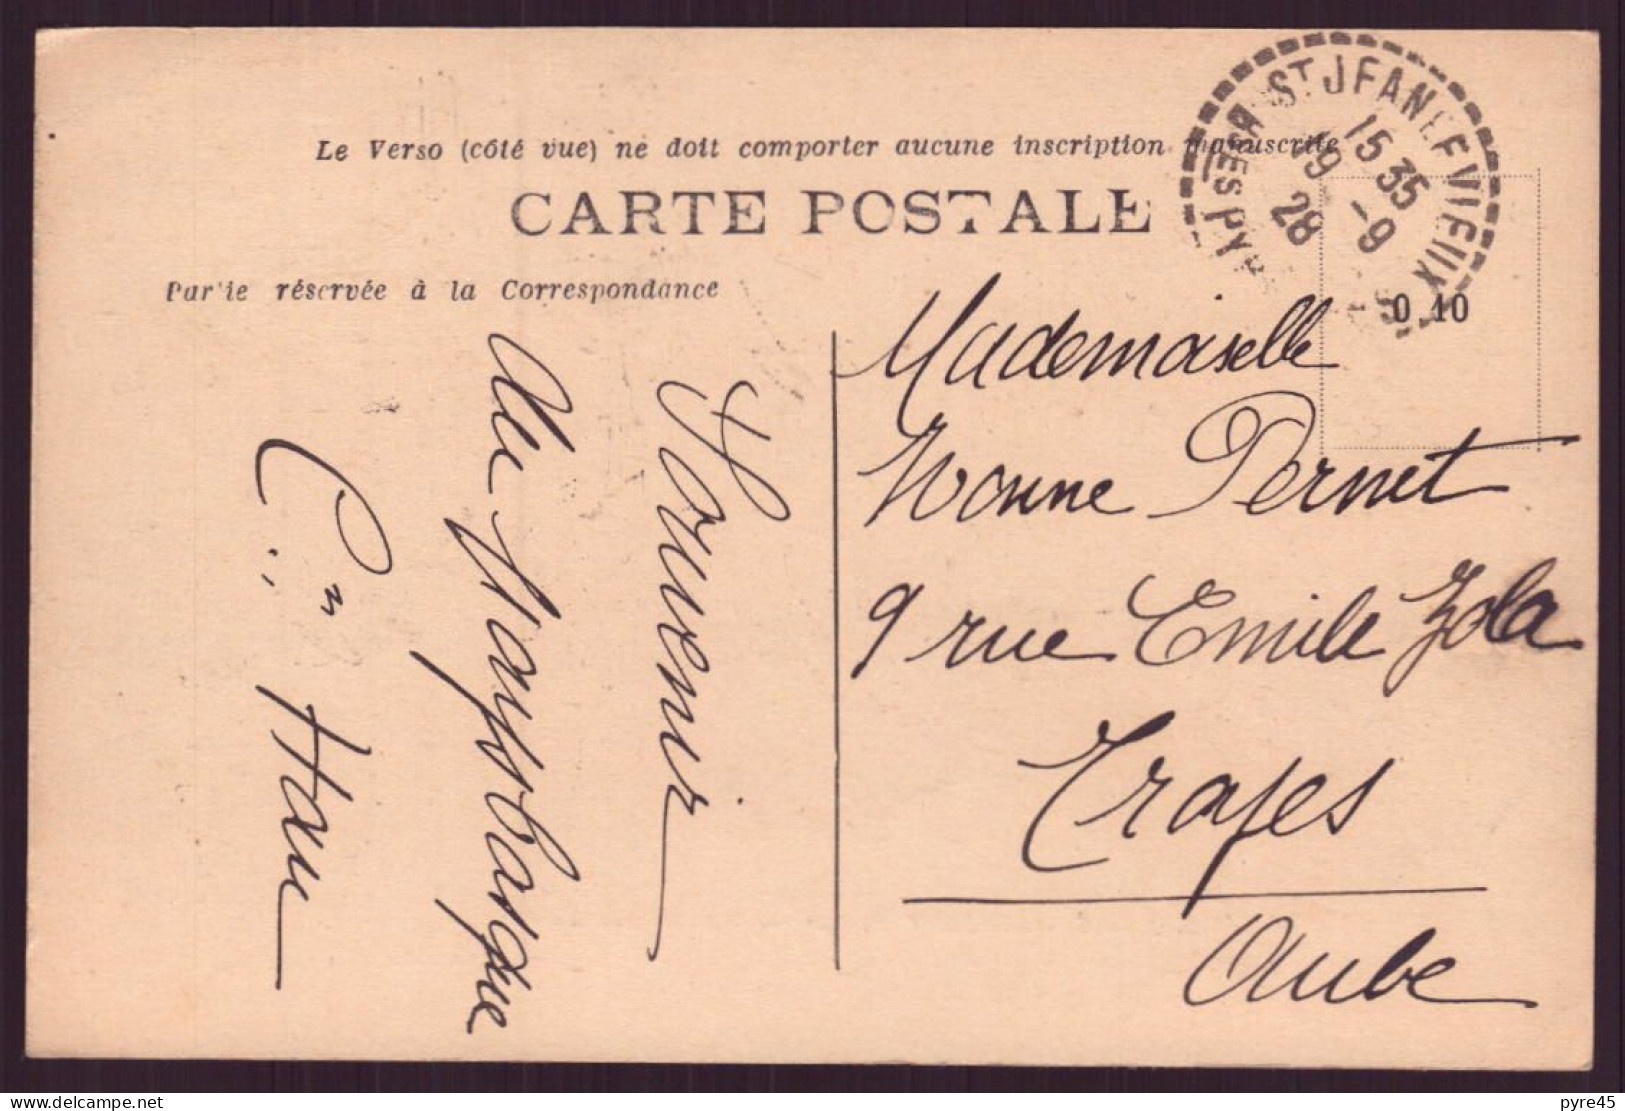 Le Verso (côté vue) ne doit comporter aucune inscription manuscrite
CARTE POSTALE
Partie réservée à la Correspondance
0,10
ST JEAN LE VIEUX
15 35
19 -9
28
Bses PYR
Souvenir
du Pays basque
Mademoiselle
Yvonne Pernet
9 rue Emile Zola
Troyes
Aube
delcampe.net
pyre45